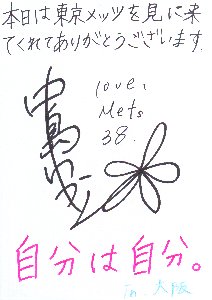 本日は東京メッツを見に来
てくれてありがとうございます。
love,
Mets
38.
自分は自分。
In 大阪